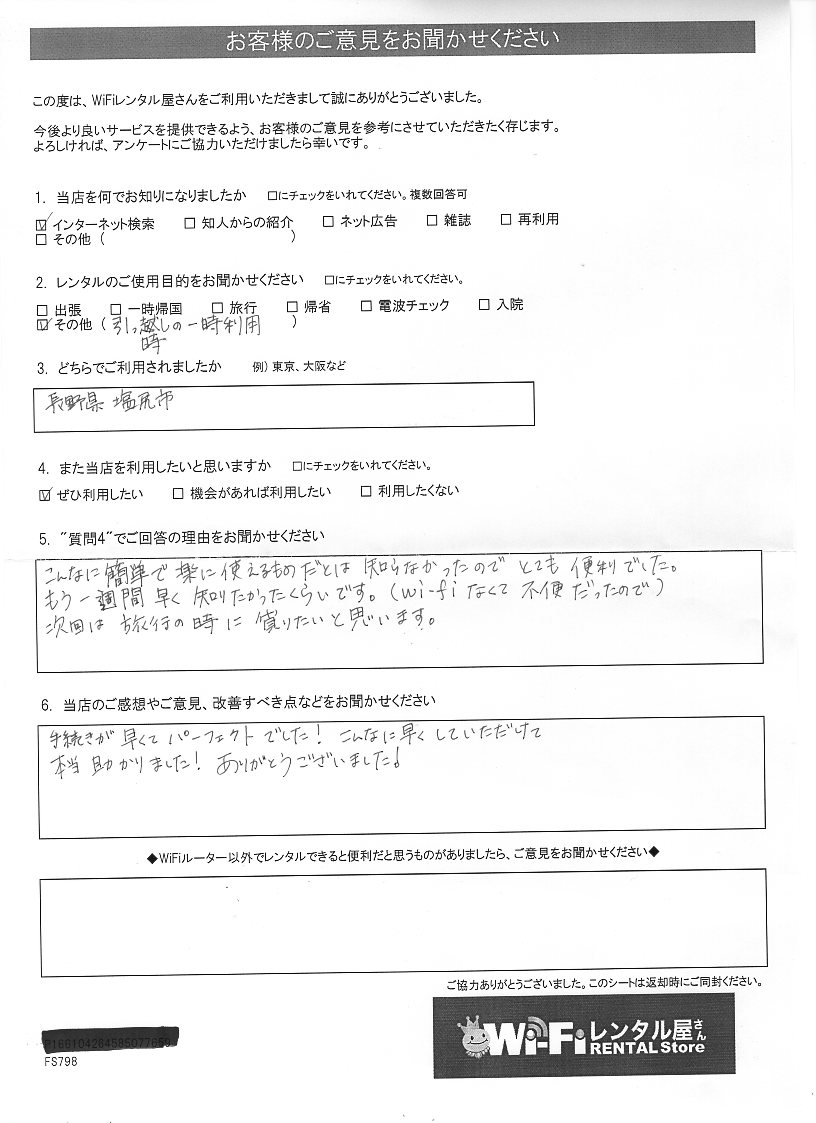 お客様のご意見をお聞かせください
この度は、WiFiレンタル屋さんをご利用いただきまして誠にありがとうございました。
今後より良いサービスを提供できるよう、お客様のご意見を参考にさせていただきたく存じます。
よろしければ、アンケートにご協力いただけましたら幸いです。
1. 当店を何でお知りになりましたか □にチェックをいれてください。複数回答可
☑ インターネット検索 □ 知人からの紹介 □ ネット広告 □ 雑誌 □ 再利用
□ その他 ( )
2. レンタルのご使用目的をお聞かせください □にチェックをいれてください。
□ 出張 □ 一時帰国 □ 旅行 □ 帰省 □ 電波チェック □ 入院
☑ その他 (引っ越しの一時利用 )
時
3. どちらでご利用されましたか 例) 東京、大阪など
長野県 塩尻市
4. また当店を利用したいと思いますか □にチェックをいれてください。
☑ ぜひ利用したい □ 機会があれば利用したい □ 利用したくない
5. "質問4"でご回答の理由をお聞かせください
こんなに簡単で楽に使えるものだとは知らなかったのでとても便利でした。
もう一週間早く知りたかったくらいです。(wi-fiなくて不便だったので)
次回は旅行の時に借りたいと思います。
6. 当店のご感想やご意見、改善すべき点などをお聞かせください
手続きが早くてパーフェクトでした! こんなに早くしていただけて
本当助かりました! ありがとうございました!
◆WiFiルーター以外でレンタルできると便利だと思うものがありましたら、ご意見をお聞かせください◆
ご協力ありがとうございました。このシートは返却時にご同封ください。
Wi-Fi レンタル屋さん
RENTAL Store
FS798